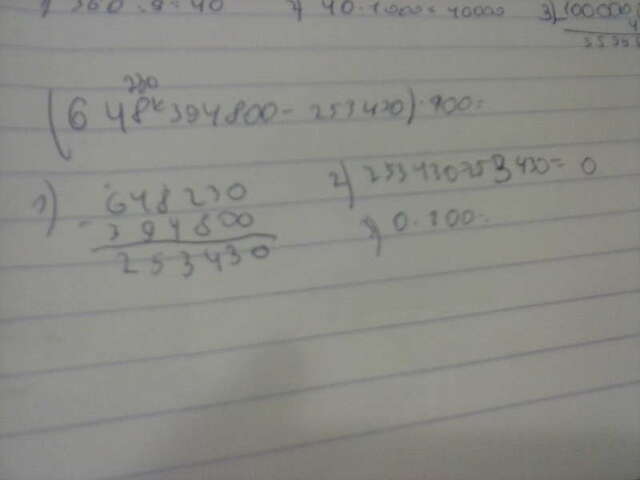 360:9=40 2) 40·1000=40000 3) 100000
230
(648-394800-253430)·900=
1) 648230
- 394800
253430
2) 253430-253430=0
3) 0·800=